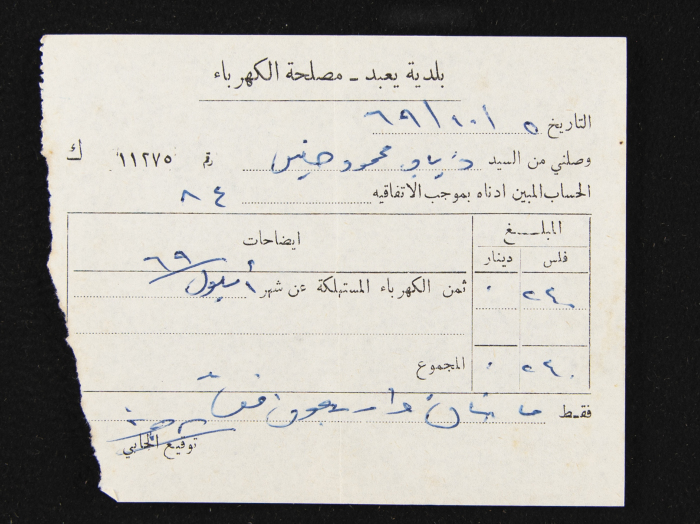 بلدية يعبد - مصلحة الكهرباء
التاريخ ٥ /١٠/ ٦٩
وصلني من السيد ذياب محمود رقم ١١٢٧٥ ك
الحساب المبين ادناه بموجب الاتفاقيه ٨٤
المبلـــغ ايضاحات
فلس دينار
٢٤٠ ٠ ثمن الكهرباء المستهلكة عن شهر أيلول ٦٩
٢٤٠ ٠ المجموع
فقـط مايتان واربعون فلس
توقيع الجابي